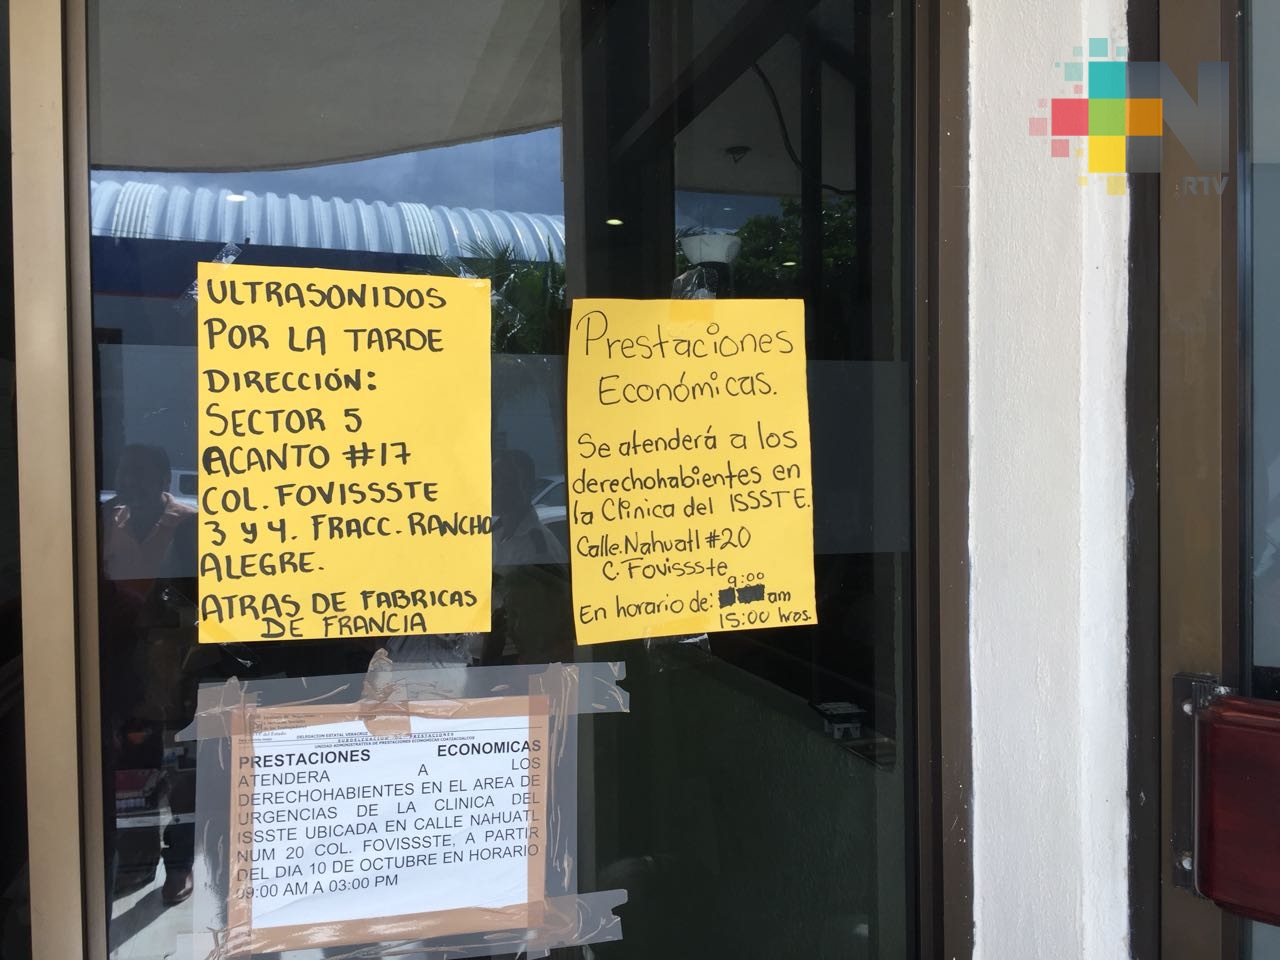 ULTRASONIDOS
POR LA TARDE
DIRECCIÓN:
SECTOR 5
ACANTO #17
COL. FOVISSSTE
3 y 4. FRACC. RANCHO
ALEGRE.
ATRAS DE FABRICAS
DE FRANCIA
Prestaciones
Económicas.
Se atenderá a los
derechohabientes en
la Clinica del ISSSTE.
Calle. Nahuatl #20
C. Fovissste
9:00
En horario de: am
15:00 hras.
DELEGACION ESTATAL VERACRUZ
SUBDELEGACION DE PRESTACIONES
UNIDAD ADMINISTRATIVA DE PRESTACIONES ECONOMICAS COATZACOALCOS
PRESTACIONES ECONOMICAS
ATENDERA A LOS
DERECHOHABIENTES EN EL AREA DE
URGENCIAS DE LA CLINICA DEL
ISSSTE UBICADA EN CALLE NAHUATL
NUM 20 COL. FOVISSSTE, A PARTIR
DEL DIA 10 DE OCTUBRE EN HORARIO
09:00 AM A 03:00 PM
N
RTV